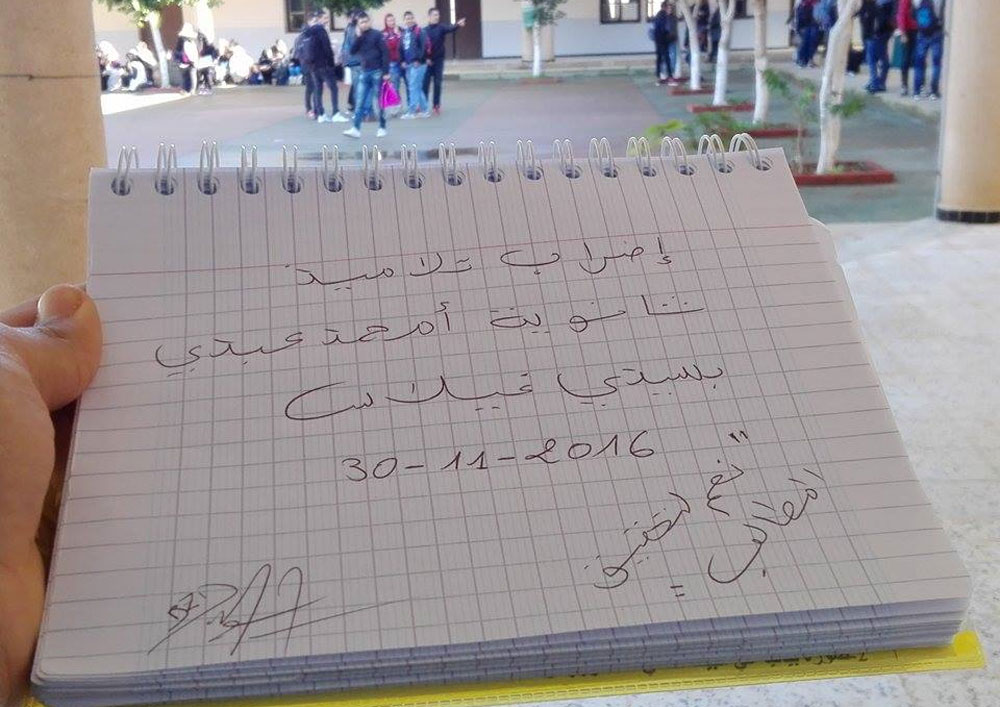 إضراب تلاميذ
ثانوية أمحمد عبدي
بسيدي غيلاس
30-11-2016
"نعم لتحقيق
المطالب"